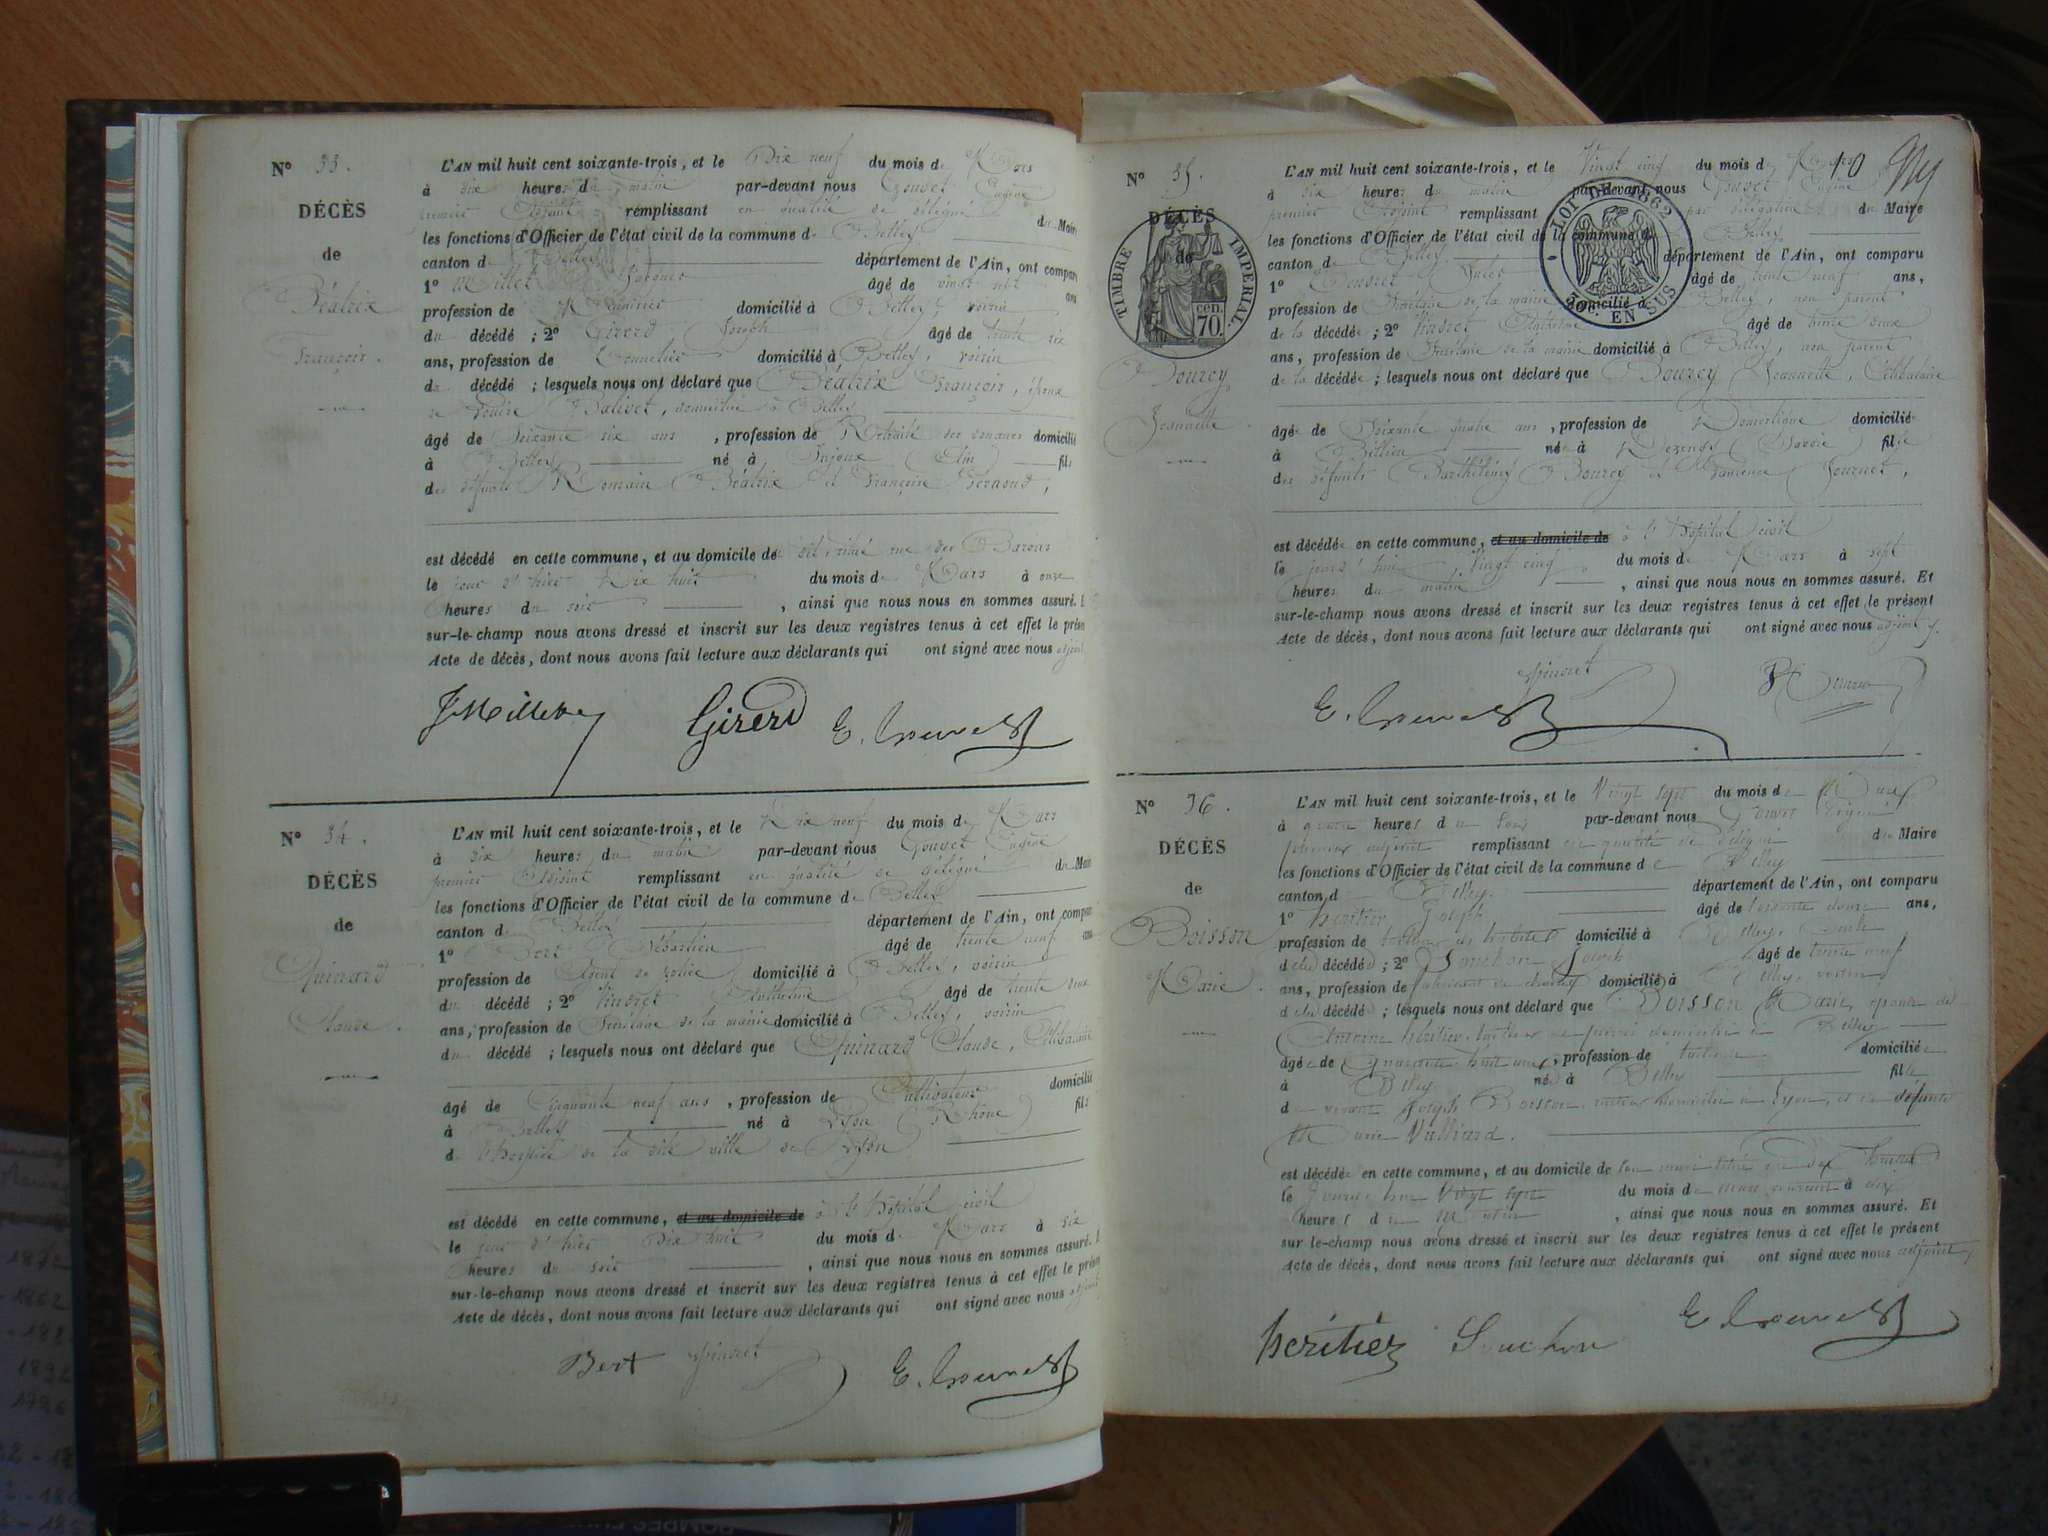 N° 33.
DÉCÈS
de
Béatrix
François.
L'AN mil huit cent soixante-trois, et le Dix neuf du mois de Mars
à dix heures du matin par-devant nous Gouvet Eugène
premier Adjoint remplissant en qualité de délégué du Maire
les fonctions d'Officier de l'état civil de la commune de Belley
canton de Belley département de l'Ain, ont comparu
1° Millet Jacques âgé de vingt ans
profession de domicilié à Belley, voisin
du décédé ; 2° Girerd Joseph âgé de trente six
ans, profession de Tonnelier domicilié à Belley, voisin
du décédé ; lesquels nous ont déclaré que Béatrix François, époux
de Louise Balivet, domicilié à Belley
âgé de Soixante six ans, profession de Retraité des douanes domicilié
à Belley né à Injoux (Ain) fils
des défunts Romain Béatrix et Françoise
est décédé en cette commune, et au domicile de dit, situé rue des Barons
le jour d'hier Dix huit du mois de Mars à onze
heures du soir, ainsi que nous nous en sommes assuré.
sur-le-champ nous avons dressé et inscrit sur les deux registres tenus à cet effet le présent
Acte de décès, dont nous avons fait lecture aux déclarants qui ont signé avec nous adjoint
JMillet Girerd E. Gouvet
N° 34.
DÉCÈS
de
Guinard
Claude.
L'AN mil huit cent soixante-trois, et le Dix neuf du mois de Mars
à dix heures du matin par-devant nous Gouvet Eugène
premier Adjoint remplissant en qualité de délégué du Maire
les fonctions d'Officier de l'état civil de la commune de Belley
canton de Belley département de l'Ain, ont comparu
1° Bert Sébastien âgé de trente neuf ans
profession de Agent de police domicilié à Belley, voisin
du décédé ; 2° Vindret Anthelme âgé de trente deux
ans, profession de Secrétaire de la mairie domicilié à Belley, voisin
du décédé ; lesquels nous ont déclaré que Guinard Claude, Célibataire
âgé de Cinquante neuf ans, profession de Cultivateur domicilié
à Belley né à Lyon (Rhône) fils
de l'hospice de la dite ville de Lyon
est décédé en cette commune, et au domicile de à l'hôpital civil
le jour d'hier Dix huit du mois de Mars à six
heures du soir, ainsi que nous nous en sommes assuré.
sur-le-champ nous avons dressé et inscrit sur les deux registres tenus à cet effet le présent
Acte de décès, dont nous avons fait lecture aux déclarants qui ont signé avec nous adjoint
Bert Vindret E. Gouvet
10
N° 35.
DÉCÈS
de
TIMBRE IMPÉRIAL
70 cen.
LOI DE 1862
EN SUS
Bourcy
Jeannette.
L'AN mil huit cent soixante-trois, et le Vingt cinq du mois de Mars
à dix heures du matin par-devant nous Gouvet Eugène
premier Adjoint remplissant par délégation du Maire
les fonctions d'Officier de l'état civil de la commune de Belley
canton de Belley département de l'Ain, ont comparu
1° Jules âgé de trente neuf ans,
profession de Secrétaire de la mairie domicilié à Belley, non parent
de la décédée ; 2° Vindret Anthelme âgé de trente deux
ans, profession de Secrétaire de la mairie domicilié à Belley, non parent
de la décédée ; lesquels nous ont déclaré que Bourcy Jeannette, Célibataire
âgée de Soixante quatre ans, profession de Domestique domicilié
à née à (Savoie) fille
des défunts Barthélemy Bourcy et
est décédée en cette commune, et au domicile de à l'hôpital civil
le jourd'hui Vingt cinq du mois de Mars à sept
heures du matin, ainsi que nous nous en sommes assuré. Et
sur-le-champ nous avons dressé et inscrit sur les deux registres tenus à cet effet le présent
Acte de décès, dont nous avons fait lecture aux déclarants qui ont signé avec nous adjoint
Vindret
E. Gouvet
N° 36.
DÉCÈS
de
Boisson
Marie.
L'AN mil huit cent soixante-trois, et le Vingt sept du mois de Mars
à quatre heures du soir par-devant nous Gouvet Eugène
premier adjoint remplissant en qualité de délégué du Maire
les fonctions d'Officier de l'état civil de la commune de Belley
canton de Belley. département de l'Ain, ont comparu
1° héritier Joseph âgé de soixante douze ans,
profession de tailleur d'habits domicilié à Belley,
de la décédée ; 2° Souchon âgé de trente neuf
ans, profession de domicilié à Belley, voisin
de la décédée ; lesquels nous ont déclaré que Boisson Marie, épouse de
Antoine héritier, domicilié à Belley
âgée de Quarante huit ans, profession de domiciliée
à Belley née à Belley fille
de vivant Joseph Boisson, domicilié à Lyon, et de défunte
Marie Vulliard.
est décédée en cette commune, et au domicile de son mari situé rue des
le Jourd'hui Vingt sept du mois de mars courant à dix
heures du matin, ainsi que nous nous en sommes assuré. Et
sur-le-champ nous avons dressé et inscrit sur les deux registres tenus à cet effet le présent
Acte de décès, dont nous avons fait lecture aux déclarants qui ont signé avec nous adjoint
héritier Souchon E. Gouvet